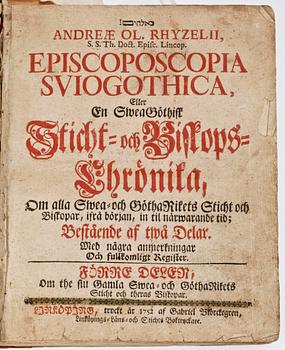 ANDREÆ OL. RHYZELII,
S. S. Th. Doct. Episc. Lincop.
EPISCOPOSCOPIA
SVIOGOTHICA,
Eller
En SweaGöthisk
Sticht- och Biskops-
Chrönika,
Om alla Swea- och GöthaRikets Sticht och
Biskopar, ifrå början, in til närwarande tid;
Bestående af twå Delar.
Med några anmerkningar
Och fullkomligt Register.
FÖRRE DELEN,
Om the sill Gamla Swea- och GöthaRikets
Sticht och theras Biskopar.
LINKÖPING, tryckt år 1752 af Gabriel Biörckegren,
Linköpings-Läns- och Stichts Boktryckare.